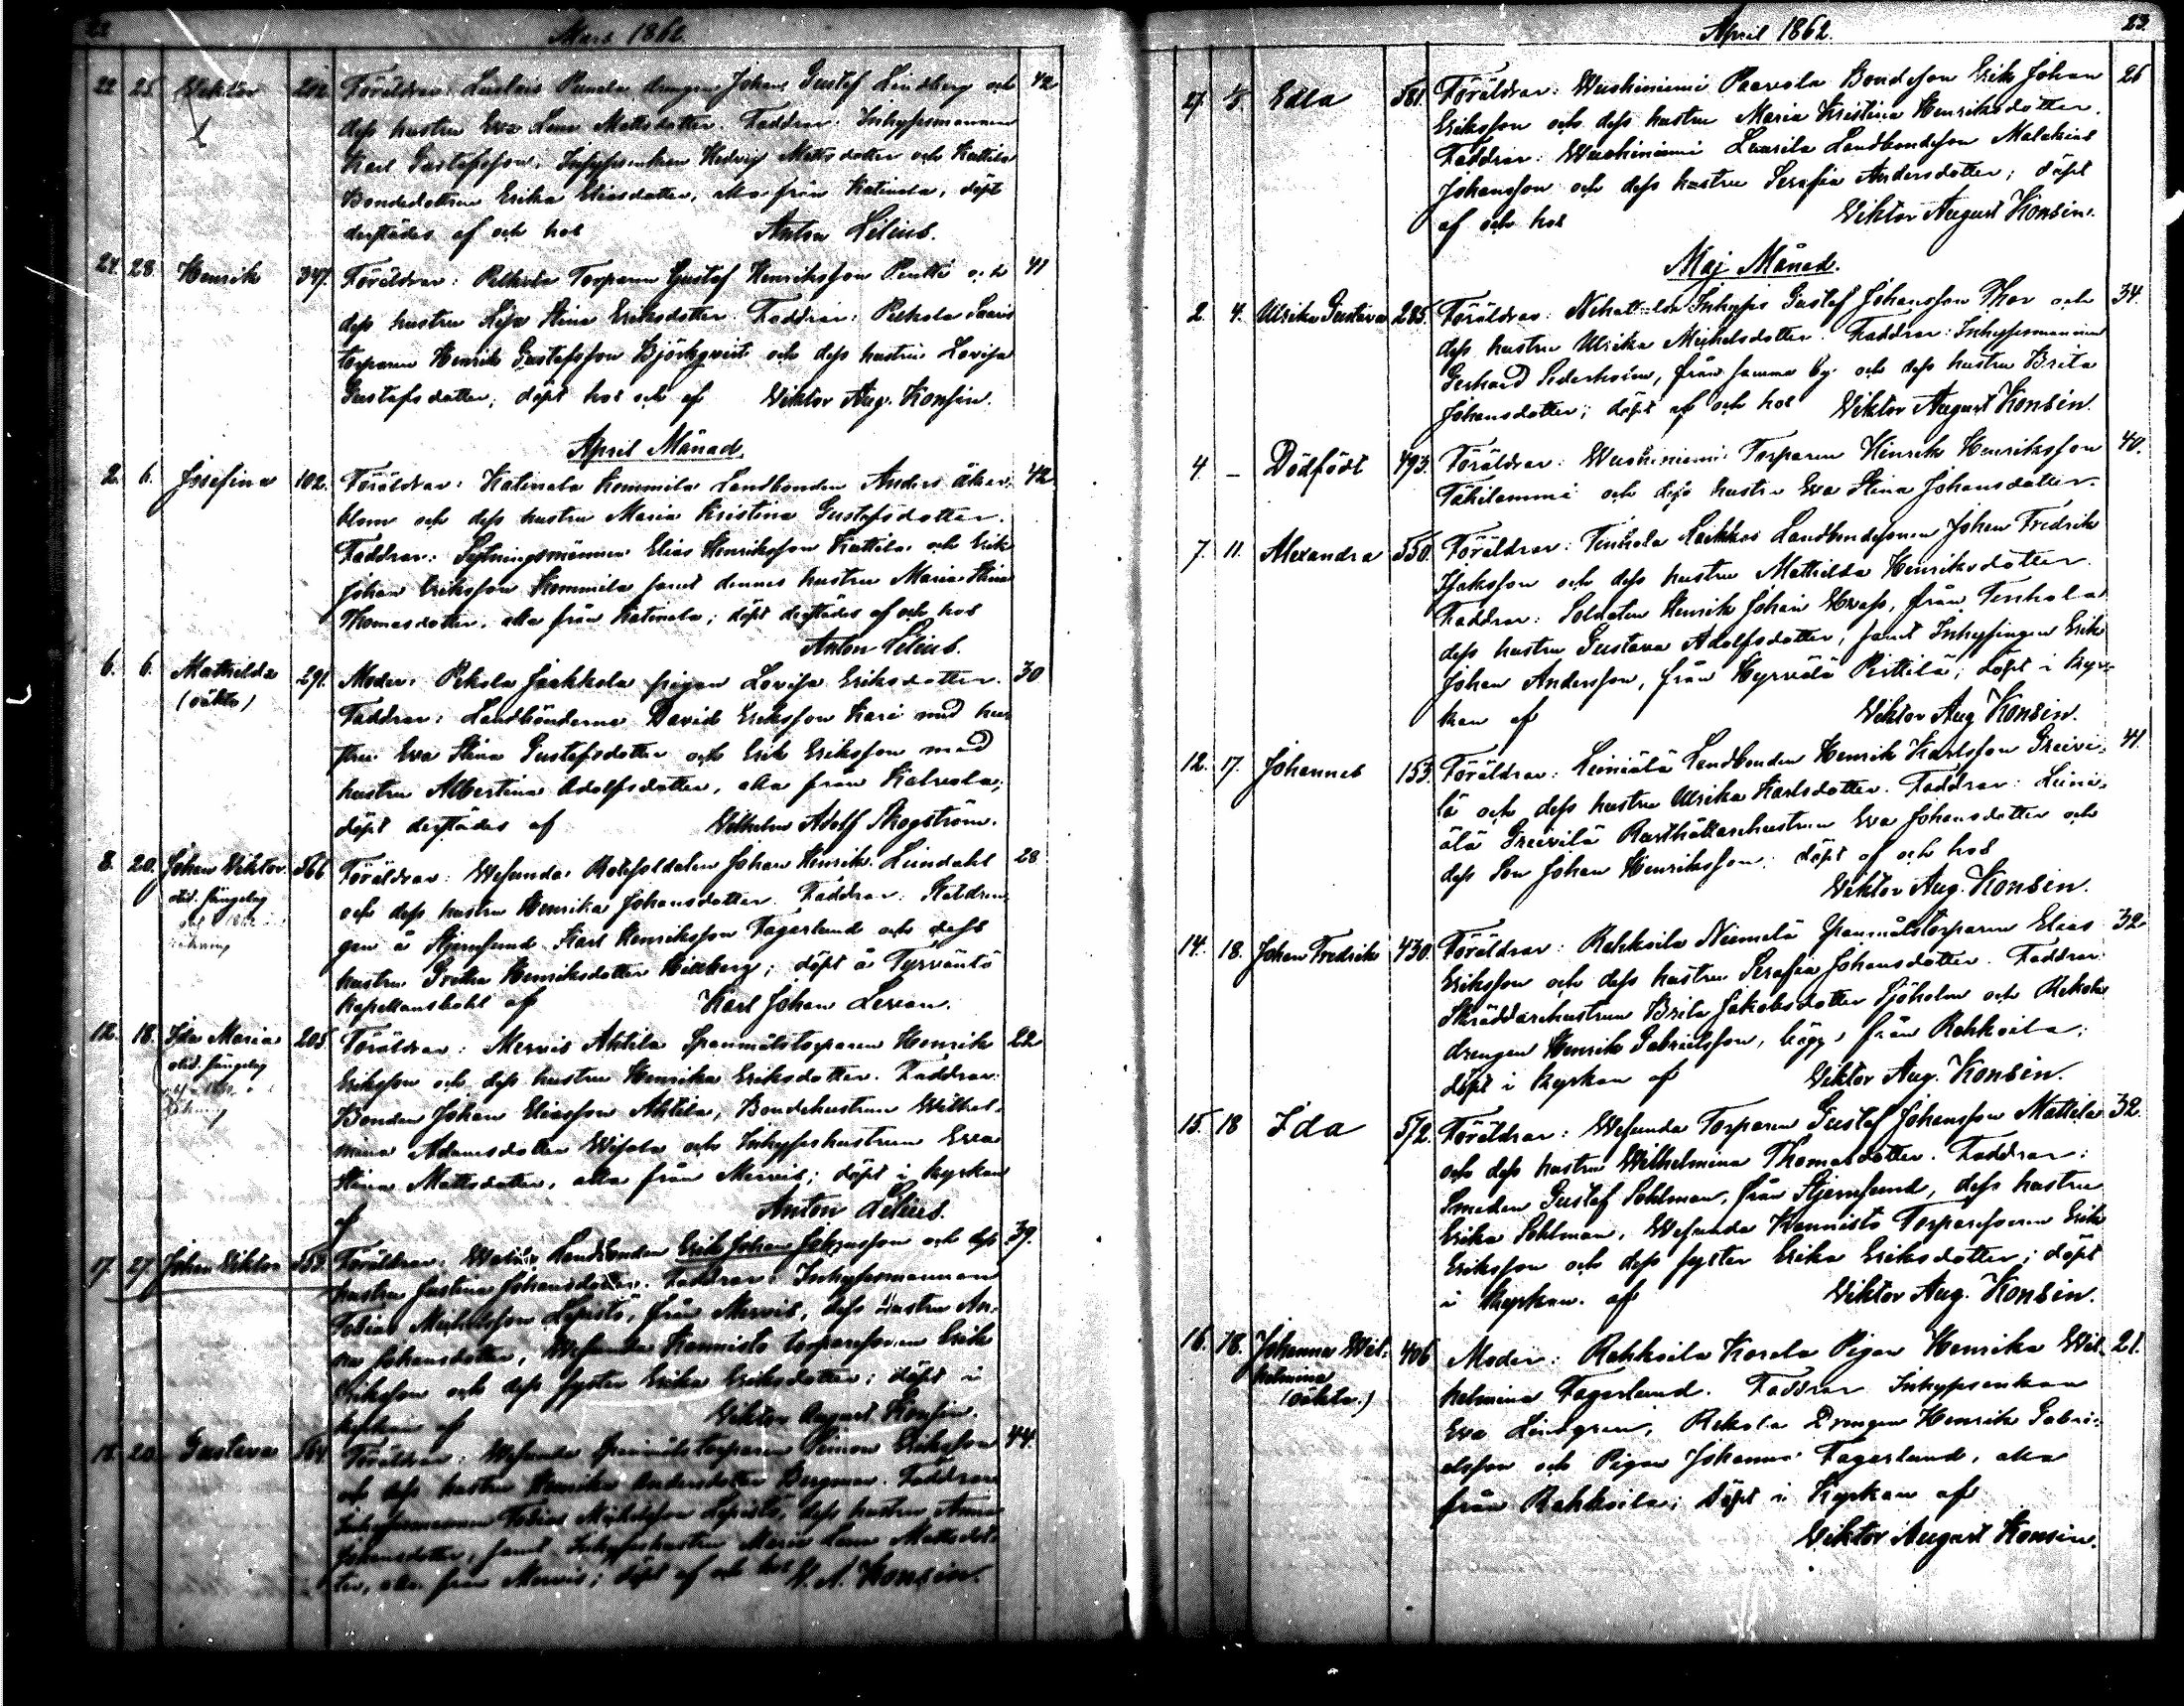 22 Mars 1862
22 25 Viktor 212 Föräldrar: Luslais Punola drengen Johan Gustaf Lindberg och 42
dess hustru Eva Lena Mattsdotter. Faddrar: Inhysesmannen
Karl Gustafsson, Inhysesenkan Hedvig Mattsdotter och Kattila
Bondedottren Erika Eliasdotter, alla från Katinala, döpt
derstädes af och hos Anton Lilius.
24. 28. Henrik 347. Föräldrar: Pelkola Torparen Gustaf Henriksson Pentti och 41
dess hustru Stina Eriksdotter. Faddrar: Pelkola Saaris
torparen Henrik Gustafsson Björkqvist och dess hustru Lovisa
Gustafsdotter, döpt hos och af Viktor Aug. Konsin.
April Månad.
2. 6. Josefina 102. Föräldrar: Katinala Kommila Landbonden Anders Åker- 42
blom och dess hustru Maria Kristina Gustafsdotter.
Faddrar: Sytningsmannen Elias Henriksson Kattila och Erik
Johan Eriksson Kommila samt dennes hustru Maria Stina
Thomasdotter, alla från Katinala; döpt derstädes af och hos
Anton Lilius.
6. 6. Mathilda 291. Moder: Pekola Jaakkola pigan Lovisa Eriksdotter. 30
(oäkta) Faddrar: Landbönderna David Eriksson Kari med hus-
tru Eva Stina Gustafsdotter och Erik Eriksson med
hustru Albertina Adolfsdotter, alla från Kalvola;
döpt derstädes af Vilhelm Adolf Skogström.
8. 20. Johan Viktor. 566 Föräldrar: Wesunda Rotesoldaten Johan Henrik Lindahl 28
och dess hustru Henrika Johansdotter. Faddrar: Statdren-
gen å Stjernsund Karl Henriksson Fagerlund och dess
hustru Greta Henriksdotter Hillberg; döpt å Tyrväntö
Kapellansbohl af Karl Johan Levan.
12. 18. Ida Maria 205. Föräldrar: Mervis Ahtila Spanmålstorparen Henrik 22
Eriksson och dess hustru Henrika Eriksdotter. Faddrar:
Bonden Johan Eliasson Ahtila, Bondehustrun Wilhel-
mina Adamsdotter Wisala och Inhyseshustrun Eva
Stina Mattsdotter, alla från Mervis; döpt i kyrkan
af Anton Lilius.
17. 27. Johan Viktor 553. Föräldrar: Landbonden Erik Johan och dess 39.
hustru Justina Johansdotter. Faddrar: Inhysesmannen
Tobias Michelsson Lepistö, från Mervis, dess hustru An-
na Johansdotter, Wesunda Kannisto torparesonen Erik
Eriksson och dess syster Erika Eriksdotter; döpt i
kyrkan af Viktor August Konsin.
18. 20. Gustava 564. Föräldrar: Wesunda Spanmålstorparen Simon Eriksson 44.
och dess hustru Henrika Andersdotter Bergman. Faddrar:
Inhysesmannen Tobias Michelsson Lepistö, dess hustru Anna
Johansdotter, samt Inhyseshustrun Maria Lena Mattsdot-
ter, alla från Mervis; döpt af och hos V. A. Konsin.
April 1862. 23.
27. Edla 581. Föräldrar: Wuohiniemi Paavola Bondeson Erik Johan 26
Eriksson och dess hustru Maria Kristina Henriksdotter.
Faddrar: Wuohiniemi Laurila Landbondeson Malakias
Johansson och dess hustru Serafia Andersdotter; döpt
af och hos Viktor August Konsin.
Maj Månad.
2. 4. Ulrika Gustava 285. Föräldrar: Inhyses Gustaf Johansson Thor och 34.
dess hustru Ulrika Michelsdotter. Faddrar: Inhysesmannen
Gerhard Sederholm, från samma by och dess hustru Brita
Johansdotter; döpt af och hos Viktor August Konsin.
4. – Dödfödt 493. Föräldrar: Wuohiniemi Torparen Henrik Henriksson 40.
Tahilammi och dess hustru Eva Stina Johansdotter.
7. 11. Alexandra 550. Föräldrar: Tenhola Laikkos Landbondesonen Johan Fredrik
Isaksson och dess hustru Mathilda Henriksdotter.
Faddrar: Soldaten Henrik Johan Hvass, från Tenhola
dess hustru Gustava Adolfsdotter, samt Inhysingen Erik
Johan Andersson, från Hyrvälä Pirttilä; döpt i kyr-
kan af Viktor Aug. Konsin.
12. 17. Johannes 153. Föräldrar: Leiniälä Landbonden Henrik Karlsson Greivi- 41.
lä och dess hustru Ulrika Karlsdotter. Faddrar: Leini-
älä Greivilä Rusthållarehustrun Eva Johansdotter och
dess Son Johan Henriksson: döpt af och hos
Viktor Aug. Konsin.
14. 18. Johan Fredrik 430. Föräldrar: Rahkoila Niemelä Spanmålstorparen Elias 32
Eriksson och dess hustru Serafia Johansdotter. Faddrar:
Skräddarehustrun Brita Jakobsdotter Sjöholm och Rekola
drengen Henrik Gabrielsson, bägge från Rahkoila;
döpt i kyrkan af Viktor Aug. Konsin.
15. 18 Ida 572. Föräldrar: Wesunda Torparen Gustaf Johansson Mattila 32.
och dess hustru Wilhelmina Thomasdotter. Faddrar:
Smeden Gustaf Sohlman, från Stjernsund, dess hustru
Erika Sohlman, Wesunda Kannisto Torparesonen Erik
Eriksson och dess syster Erika Eriksdotter; döpt
i kyrkan af Viktor Aug. Konsin.
16. 18. Johanna Wil- 406 Moder: Rahkoila Karela Pigan Henrika Wil- 21.
helmina helmina Fagerlund. Faddrar Inhysenkan
(oäkta.) Eva Lindgren, Rekola Drengen Henrik Gabri-
elsson och Pigan Johanna Fagerlund, alla
från Rahkoila; döpt i Kyrkan af
Viktor August Konsin.